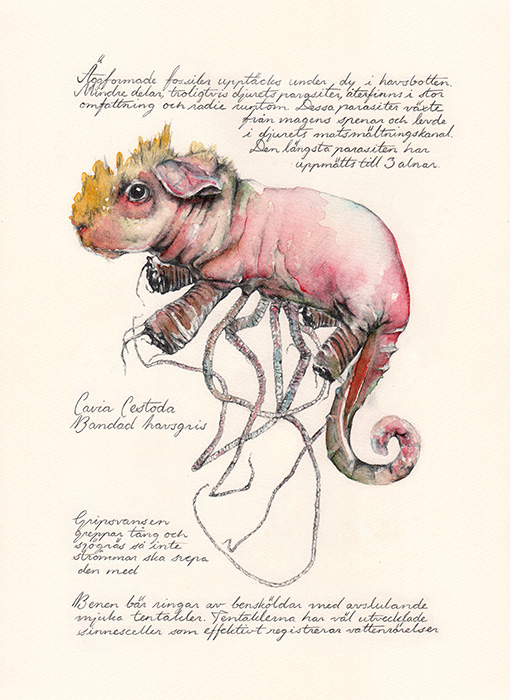 Äggformade fossiler upptäcks under dy i havsbotten.
Mindre delar, troligtvis djurets parasiter, återfinns i stor
omfattning och radie runtom. Dessa parasiter växte
från magens spenar och levde
i djurets matsmältningskanal.
Den längsta parasiten har
uppmätts till 3 alnar.
Cavia Cestoda
Bandad havsgris
Gripsvansen
greppar tång och
sjögräs så inte
strömmar ska svepa
den med
Benen bär ringar av bensköldar med avslutande
mjuka tentakler. Tentaklerna har väl utvecklade
sinnesceller som effektivt registrerar vattenrörelser